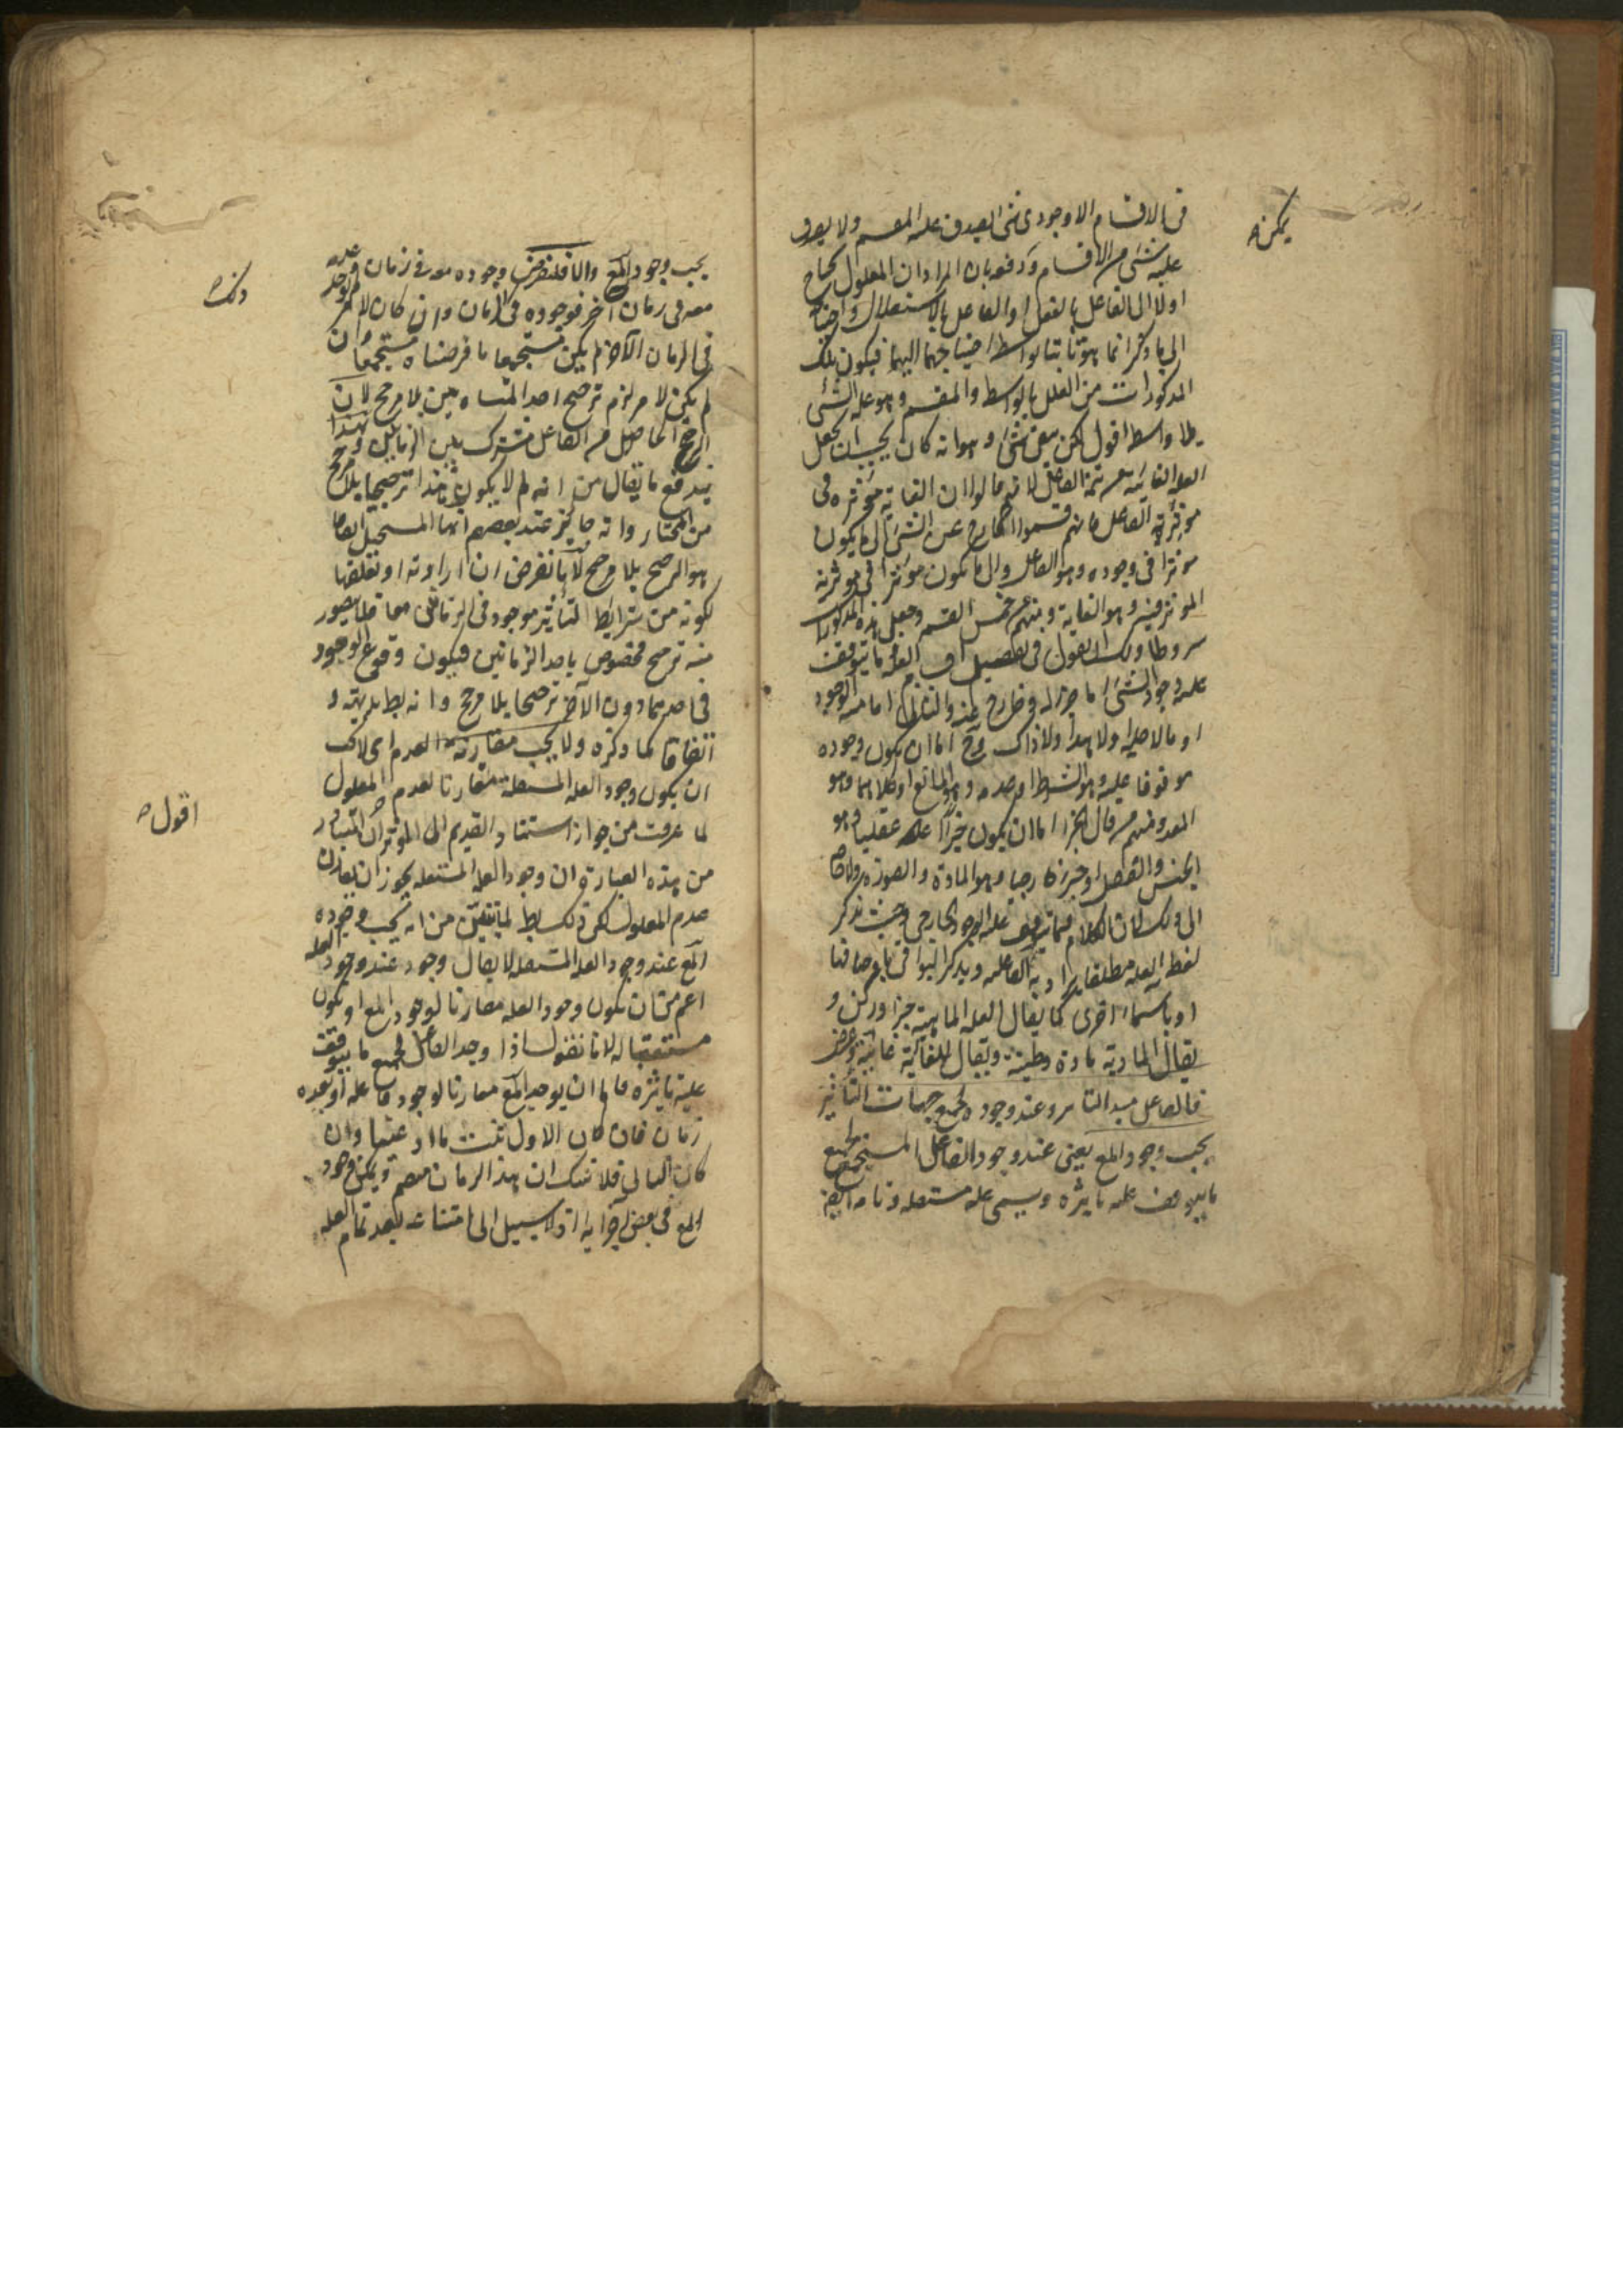 يمكن
فى الاقسام الا وجودى شئ يصدق عليه المقسم ولا يصدق
عليه شئ من الاقسام ودفعه بان المراد ان المعلول يحتاج
اولا الى الفاعل بالفعل او الفاعل بالاستقلال واحتياجه
الى ما ذكر انما هو ثابتا بواسطة احتياجهما اليهما فيكون تلك
المذكورات من العلل بالواسطة والمقسم وهو علة الشئ
بلا واسطة اقول لكن بقى شئ وهو انه كان يجب ان يجعل
العلة الغائية من تتمة الفاعل لانهم قالوا ان الغاية مؤثرة فى
مؤثرية الفاعل فانهم قسموا الخارج عن الشئ الى ما يكون
مؤثرا فى وجوده وهو الفاعل والى ما يكون مؤثرا فى مؤثرية
المؤثر فيه وهو الغاية ومنهم من خمس القسم وجعل هذه المذكورات
شروطا ولك ان تقول فى تفصيل اقسام العلة ما يتوقف
عليه وجود الشئ اما جزء له او خارج عنه والثانى اما ما منه الوجود
او ما لاجله او لا هذا ولا ذاك وح اما ان يكون وجوده
موقوفا عليه وهو الشرط او عدمه وهو المانع او كلاهما وهو
المعد ومنهم من قال الجزء اما ان يكون جزءا عقليا وهو
الجنس والفصل او جزءا خارجيا وهو المادة والصورة ولا حاجة
الى ذلك لان الكلام فيما يتوقف عليه الوجود الخارجى وحيث يذكر
لفظ العلة مطلقا يراد به الفاعلية ويذكر البواقى باوصافها
او باسماء اخرى كما يقال لعلة الماهية جزء وركن و
يقال للمادية مادة وطينة ويقال للغائية غاية وغرض
فالفاعل مبدأ التاثير وعند وجوده بجميع جهات التأثير
يجب وجود المع يعنى عند وجود الفاعل المستجمع لجميع
ما يتوقف عليه تاثيره ويسمى علة مستقلة وتامة ايضا
يجب وجود المع والا فلنفرض وجوده معه فى زمان وعدمه
معه فى زمان آخر فوجوده فى الزمان وان كان لامر لم يوجد
ذلك
فى الزمان الآخر لم يكن مستجمعا ما فرضناه مستجمعا وان
لم يكن لامر لزم ترجيح احد المتساويين بلا مرجح لان
المرجح الحاصل من الفاعل مشترك بين الزمانين وبهذا
يندفع ما يقال من انه لم لا يكون هذا ترجيحا بلا مرجح
من المختار وانه جائز عند بعضهم انما المستحيل اتفاقا
هو الترجح بلا مرجح لانا نفرض ان ارادته او تعلقها
لكونه من شرايط التأثير موجود فى الزمانين معا فلا يتصور
منه ترجيح مخصوص باحد الزمانين فيكون وقوع الوجود
فى احدهما دون الآخر ترجحا بلا مرجح وانه بط بديهة و
اتفاقا كما ذكره ولا يجب مقارنة العدم اى لا يجب
ان يكون وجود العلة المستقلة مقارنا لعدم المعلول
لما عرفت من جواز استناد القديم الى المؤثر اقول المتبادر
من هذه العبارة ان وجود العلة المستقلة يجوز ان يقارن
عدم المعلول لكن ذلك بط لما تبين من انه يجب وجود
المع عند وجود العلة المستقلة لا يقال وجوده عند وجود العلة
اعم من ان يكون وجود العلة مقارنا لوجود المع او يكون
مستعقبا له لانا نقول اذا وجد الفاعل بجميع ما يتوقف
عليه تاثيره فاما ان يوجد المع مقارنا لوجود فاعله او بعده
بزمان فان كان الاول ثبت ما ادعينا وان
كان الثانى فلا شك ان هذا الزمان منقسم ويمكن وجود
المع فى بعض اجزائه اذ لا سبيل الى امتناعه بعد تمام العلة